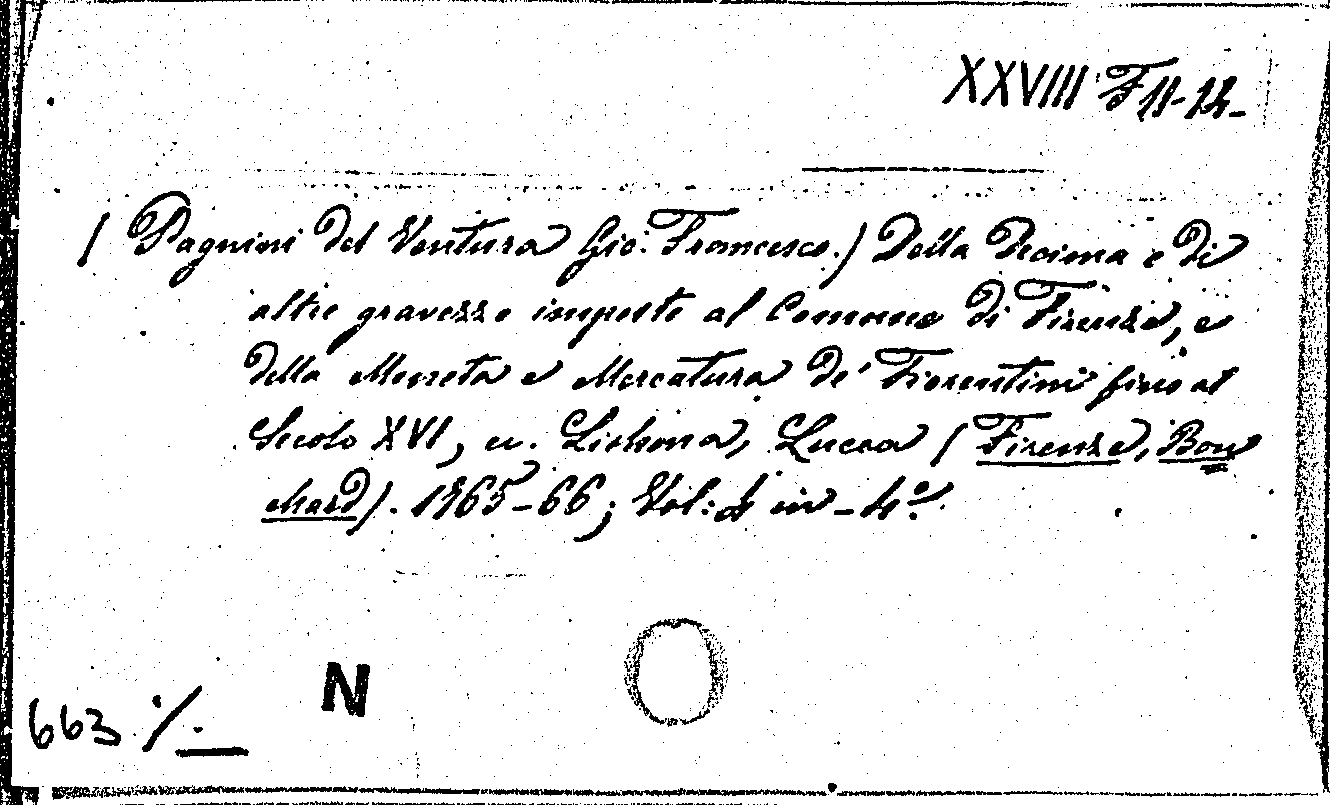 XXVIII F 11-14-
(Pagnini del Ventura Gio. Francesco.) Della Decima e di
altre gravezze imposte al Comune di Firenze, e
della Moneta e Mercatura de' Fiorentini fino al
Secolo XVI, ec. Lisbona, Lucca (Firenze, Bou
chard). 1765-66; Vol: 4 in-4º.
N
663 %.